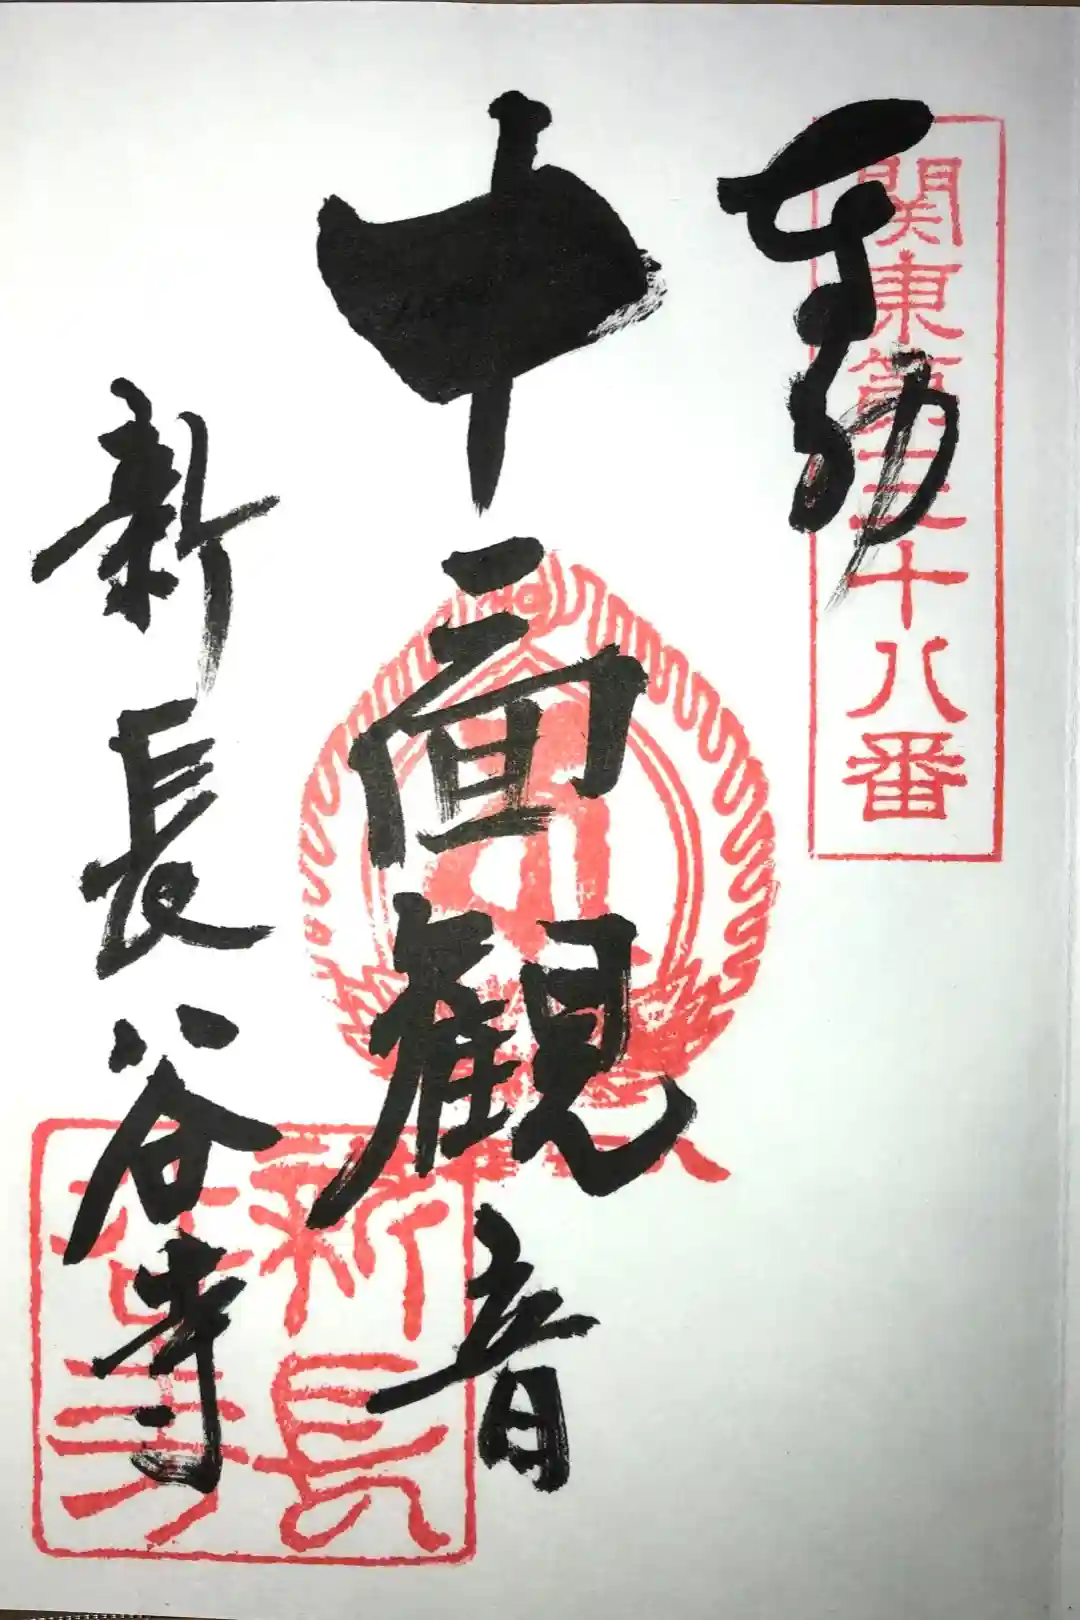 関東第三十八番
十一面観音
新長谷寺
新長谷寺